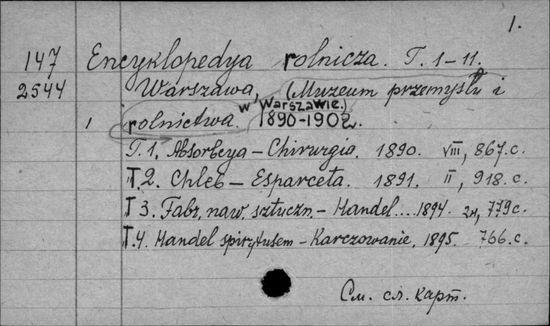 1.
147 Encyklopedya rolnicza. T. 1-11.
2544 Warszawa, (Muzeum przemysłu i
w Warszawie.)
1 rolnictwa. 1890-1902.
T.1. Absorbcya - Chirurgia. 1890. VIII, 867.c.
T.2. Chleb - Esparceta. 1891. II, 918.c.
T 3. Fabr. naw. sztuczn. - Handel.... 1894. 2н, 779c.
T.4. Handel spirytusem - Karczowanie. 1895. 766.c.
См. сл. карт.